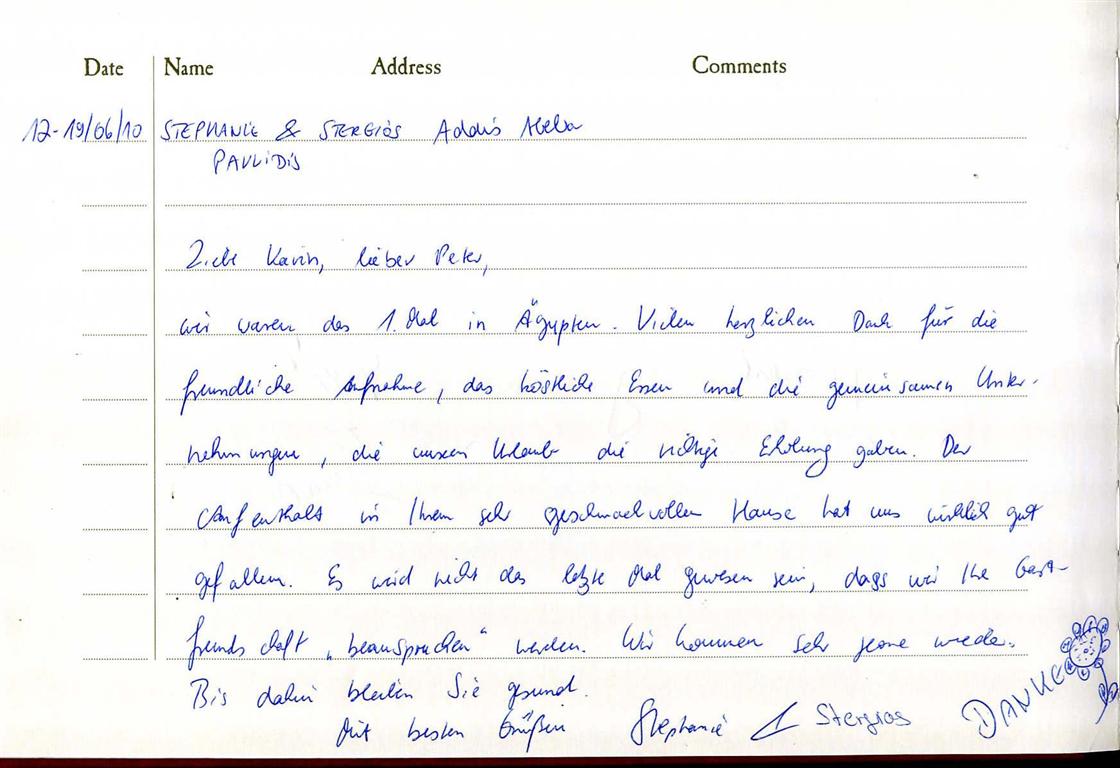 Date Name Address Comments
12-19/06/10 STEPHANIE & STERGIOS Addis Abeba
PAVLIDIS
Liebe Karin, lieber Peter,
wir waren das 1. Mal in Ägypten. Vielen herzlichen Dank für die
freundliche Aufnahme, das köstliche Essen und die gemeinsamen Unter-
nehmungen, die unserem Urlaub die richtige Erholung gaben. Der
Aufenthalt in Ihrem sehr geschmackvollen Hause hat uns wirklich gut
gefallen. Es wird nicht das letzte Mal gewesen sein, dass wir Ihre Gast-
freundschaft „beanspruchen" werden. Wir kommen sehr gerne wieder.
Bis dahin bleiben Sie gesund.
Mit besten Grüßen Stephanie & Stergios
DANKE